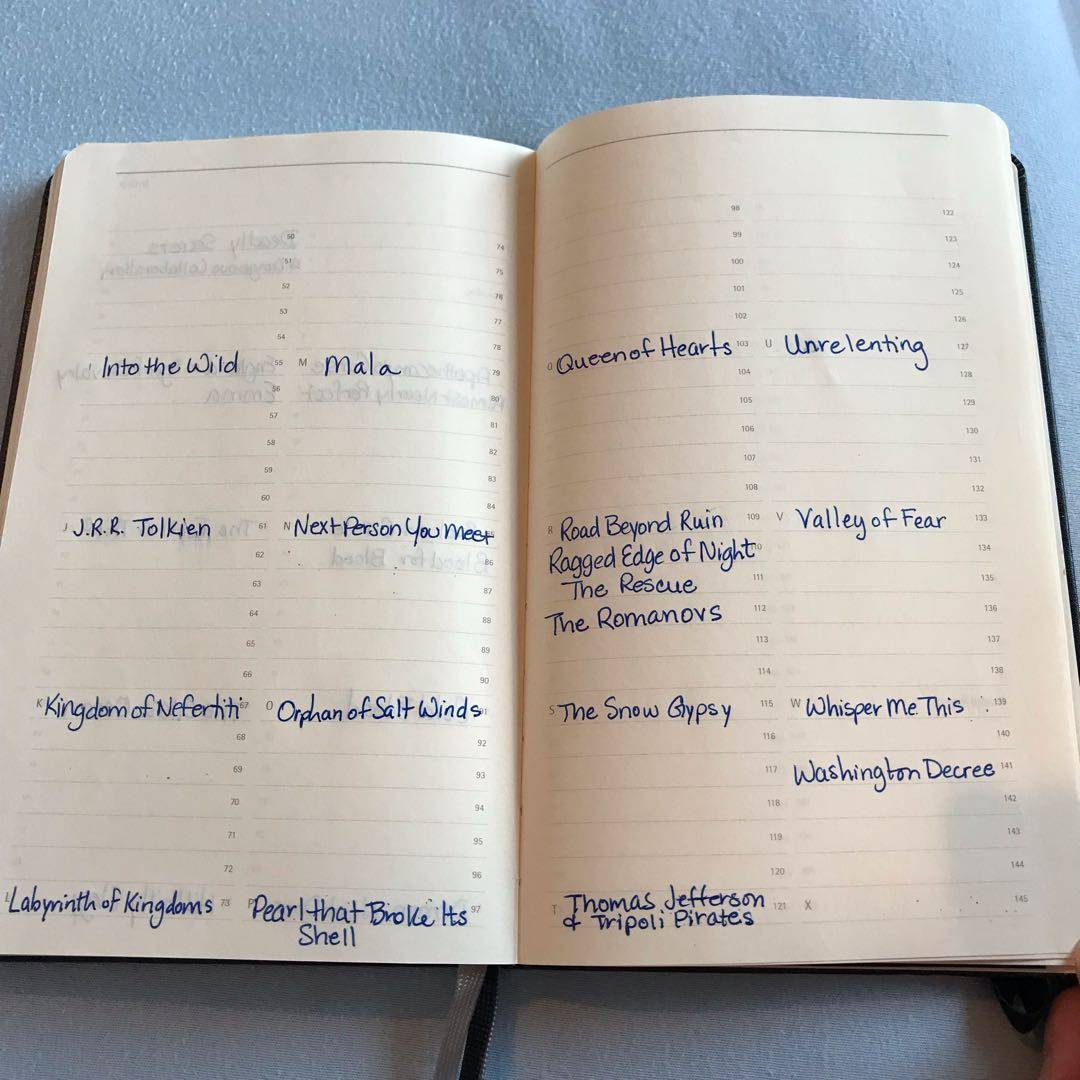 I Into the Wild
J J.R.R. Tolkien
K Kingdom of Nefertiti
L Labyrinth of Kingdoms
50
51
52
53
54
55
56
57
58
59
60
61
62
63
64
65
66
67
68
69
70
71
72
73
M Mala
N Next Person You Meet
O Orphan of Salt Winds
P Pearl that Broke Its
Shell
74
75
76
77
78
79
80
81
82
83
84
86
87
88
89
90
91
92
93
94
95
96
97
Q Queen of Hearts
R Road Beyond Ruin
Ragged Edge of Night
The Rescue
The Romanovs
S The Snow Gypsy
T Thomas Jefferson
& Tripoli Pirates
98
99
100
101
102
103
104
105
106
107
108
109
110
111
112
113
114
115
116
117
118
119
120
121
U Unrelenting
V Valley of Fear
W Whisper Me This
Washington Decree
X
122
123
124
125
126
127
128
129
130
131
132
133
134
135
136
137
138
139
140
141
142
143
144
145